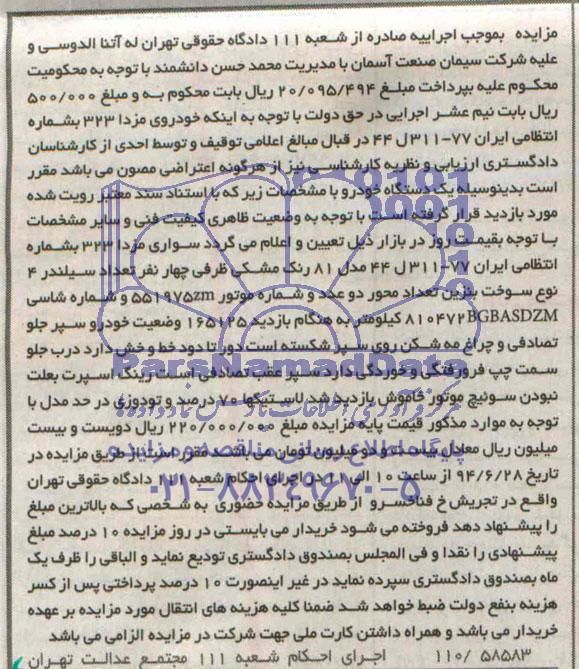 مزایده بموجب اجراییه صادره از شعبه ۱۱۱ دادگاه حقوقی تهران له آتنا الدوسی و
علیه شرکت سیمان صنعت آسمان با مدیریت محمد حسن دانشمند با توجه به محکومیت
محکوم علیه بپرداخت مبلغ ۲۰/۰۹۵/۴۹۴ ریال بابت محکوم به و مبلغ ۵۰۰/۰۰۰
ریال بابت نیم عشر اجرایی در حق دولت با توجه به اینکه خودروی مزدا ۳۲۳ بشماره
انتظامی ایران ۷۷-۳۱۱ل ۴۴ در قبال مبالغ اعلامی توقیف و توسط احدی از کارشناسان
دادگستری ارزیابی و نظریه کارشناسی نیز از هرگونه اعتراضی مصون می باشد مقرر
است بدینوسیله یک دستگاه خودرو با مشخصات زیر که با استناد سند معتبر رویت شده
مورد بازدید قرار گرفته است با توجه به وضعیت ظاهری کیفیت فنی و سایر مشخصات
با توجه بقیمت روز در بازار ذیل تعیین و اعلام می گردد سواری مزدا ۳۲۳ بشماره
انتظامی ایران ۷۷-۳۱۱ل ۴۴ مدل ۸۱ رنگ مشکی ظرفی چهار نفر تعداد سیلندر ۴
نوع سوخت بنزین تعداد محور دو عدد و شماره موتور ۵۵۱۹۷۵zm و شماره شاسی
۸۱۰۴۷۲BGBASDZM کیلومتر به هنگام بازدید ۱۶۵۱۲۵ وضعیت خودرو سپر جلو
تصادفی و چراغ مه شکن روی سپر شکسته است دور تا دود خط و خش دارد درب جلو
سمت چپ فرورفتگی و خوردگی دارد سپر عقب تصادفی است رینگ اسپرت بعلت
نبودن سوئیچ موتور خاموش بازدید شد لاستیکها ۷۰ درصد و تودوزی در حد مدل با
توجه به موارد مذکور قیمت پایه مزایده مبلغ ۲۲۰/۰۰۰/۰۰۰ ریال دویست و بیست
میلیون ریال معادل بیست و دو میلیون تومان می باشد مقرر است از طریق مزایده در
تاریخ ۹۴/۶/۲۸ از ساعت ۱۰ الی ۱۱ در اجرای احکام شعبه ۱۲۱ دادگاه حقوقی تهران
واقع در تجریش خ فناخسرو از طریق مزایده حضوری به شخصی که بالاترین مبلغ
را پیشنهاد دهد فروخته می شود خریدار می بایستی در روز مزایده ۱۰ درصد مبلغ
پیشنهادی را نقدا و فی المجلس بصندوق دادگستری تودیع نماید و الباقی را ظرف یک
ماه بصندوق دادگستری سپرده نماید در غیر اینصورت ۱۰ درصد پرداختی پس از کسر
هزینه بنفع دولت ضبط خواهد شد ضمنا کلیه هزینه های انتقال مورد مزایده بر عهده
خریدار می باشد و همراه داشتن کارت ملی جهت شرکت در مزایده الزامی می باشد
۱۱۰/ ۵۸۵۸۳ اجرای احکام شعبه ۱۱۱ مجتمع عدالت تهران
ParsNamadData
پایگاه اطلاع رسانی مناقصه و مزایده
۰۲۱-۸۸۳۴۹۶۷۰-۵